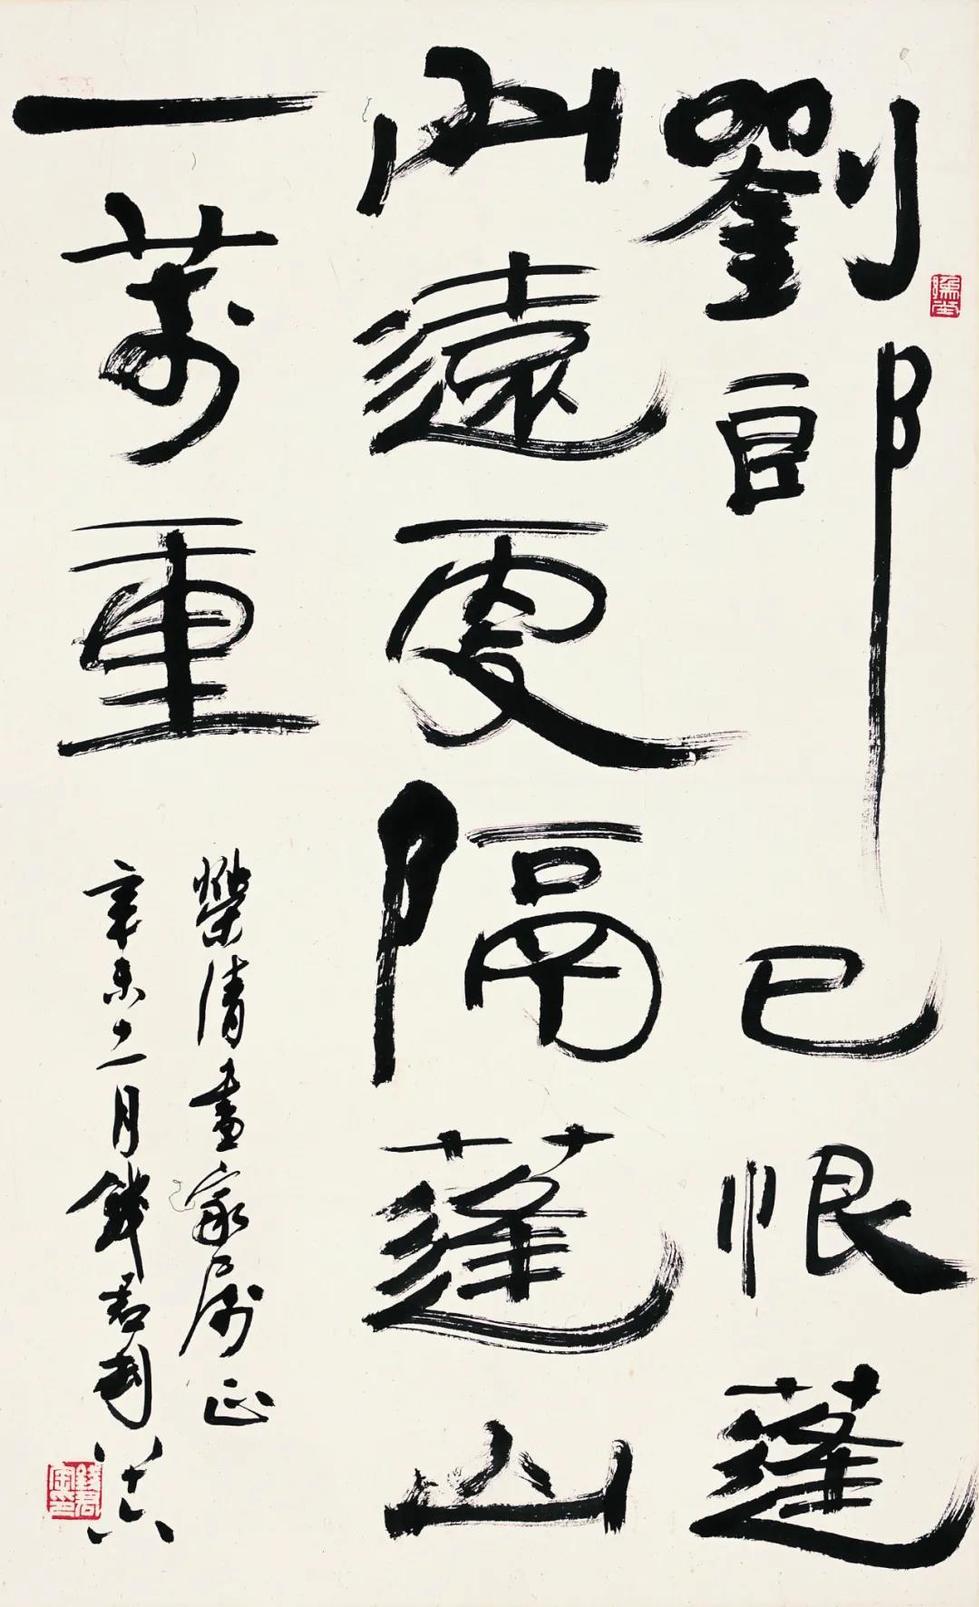 劉郎已恨蓬
山遠更隔蓬山
一萬重
榮清畫家属正
辛未十二月錢君匋八十六